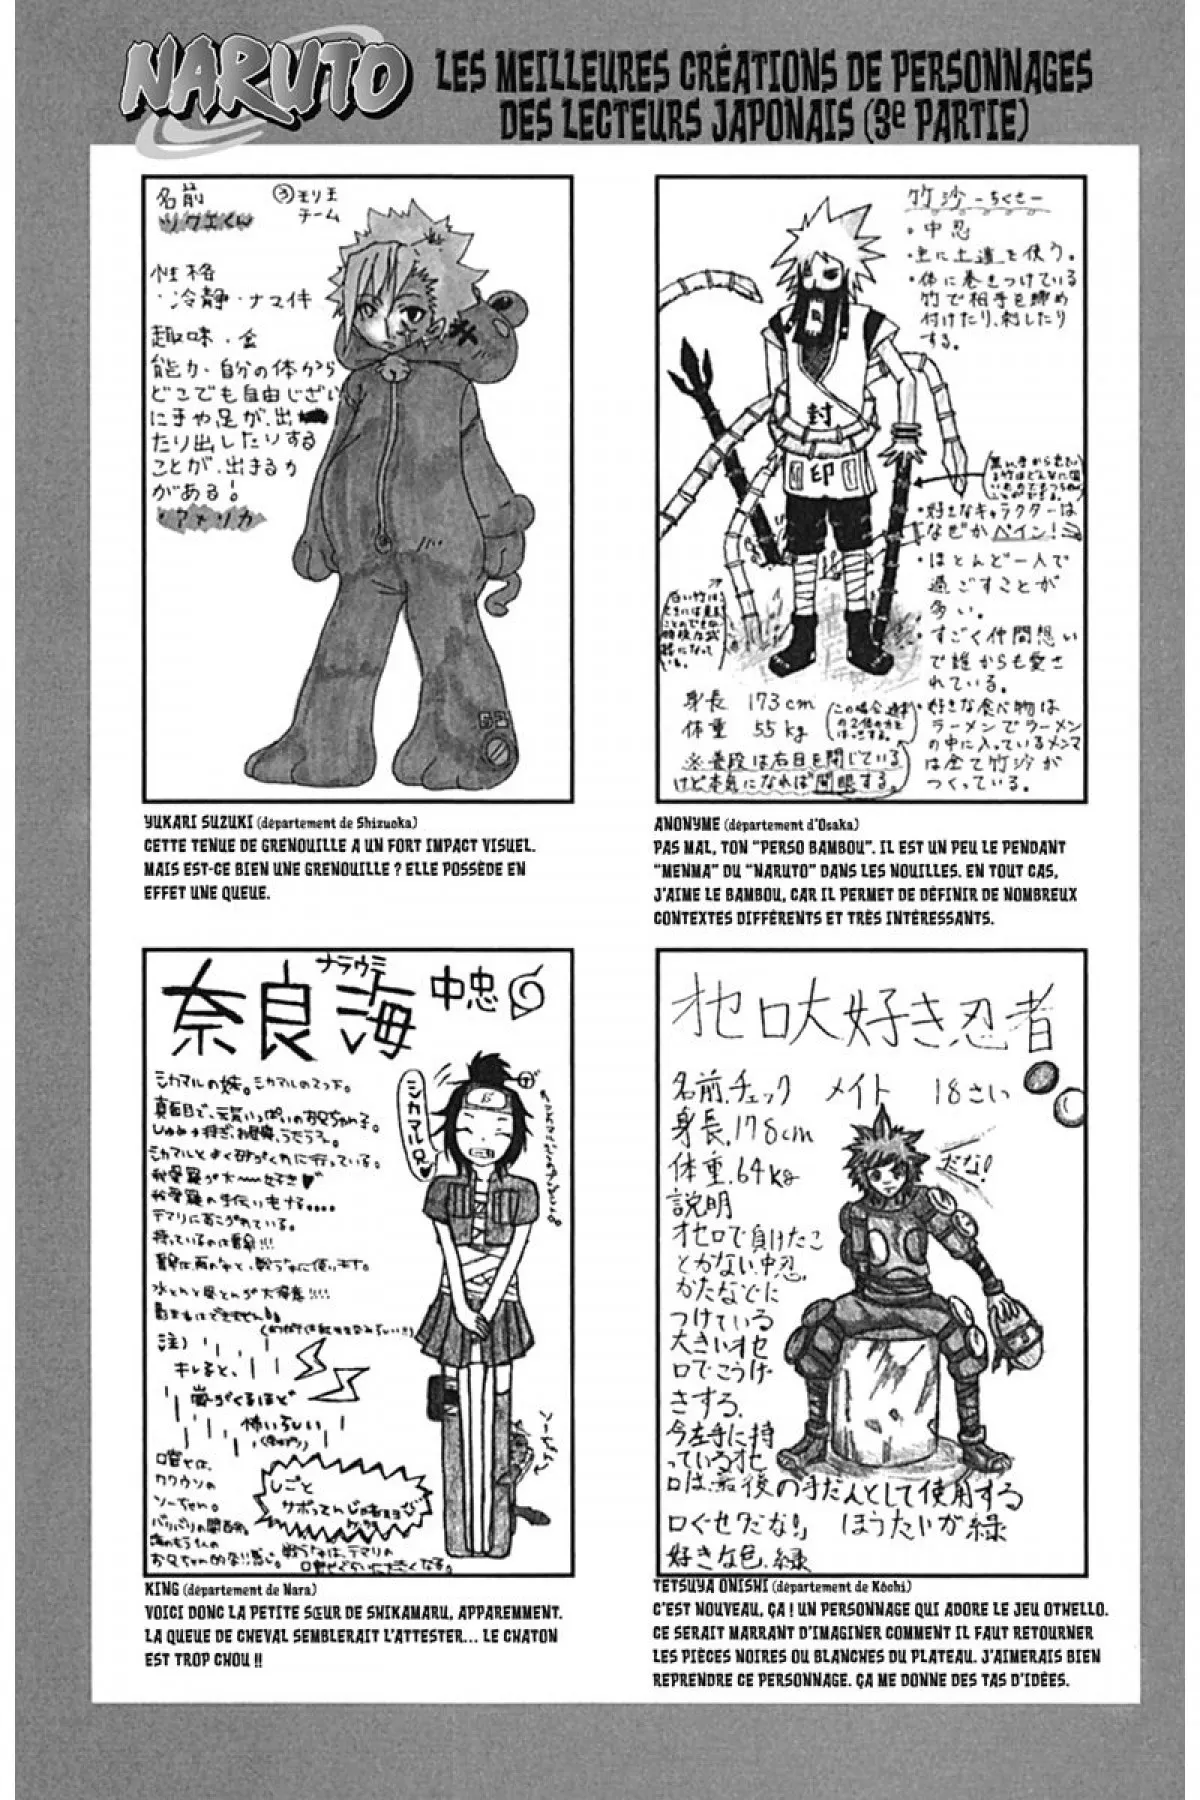 NARUTO
LES MEILLEURES CRÉATIONS DE PERSONNAGES
DES LECTEURS JAPONAIS (3e PARTIE)
名前
ツクエくん
③モリ王
チーム
性格
・冷静・ナマイキ
趣味・金
能力・自分の体から
どこでも自由じざい
に手や足が、出
たり出したりする
ことが、出まるカ
がある!
・アメリカ
YUKARI SUZUKI (département de Shizuoka)
CETTE TENUE DE GRENOUILLE A UN FORT IMPACT VISUEL.
MAIS EST-CE BIEN UNE GRENOUILLE ? ELLE POSSÈDE EN
EFFET UNE QUEUE.
竹沙 -ちくさ-
・中忍
・主に土遁を使う。
・体に巻きつけている
竹で相手を締め
付けたり、刺したり
する。
・好きなキャラクターは
なぜかペイン!
・ほとんど一人で
過ごすことが
多い。
・すごく仲間想い
で誰からも愛さ
れている。
・好きな食べ物は
ラーメンでラーメン
の中に入っているメンマ
は全て竹沙が
つくっている。
封
印
身長 173cm
体重 55kg
※普段は右目を閉じている
けど本気になれば開眼する。
ANONYME (département d'Osaka)
PAS MAL, TON "PERSO BAMBOU". IL EST UN PEU LE PENDANT
"MENMA" DU "NARUTO" DANS LES NOUILLES. EN TOUT CAS,
J'AIME LE BAMBOU, CAR IL PERMET DE DÉFINIR DE NOMBREUX
CONTEXTES DIFFÉRENTS ET TRÈS INTÉRESSANTS.
ナラウミ
奈良海 中忠
シカマルの妹。シカマルの2つ下。
シカマル兄
シカマルとよく砂がくれに行っている。
我愛羅が大〜好き
テマリにあこがれている。
注)
キレると、
嵐がくるほど
怖いらしい
口寄せは、
カワウソの
ソーちゃん。
しごと
サボってんじゃ
KING (département de Nara)
VOICI DONC LA PETITE SŒUR DE SHIKAMARU, APPAREMMENT.
LA QUEUE DE CHEVAL SEMBLERAIT L'ATTESTER... LE CHATON
EST TROP CHOU !!
オセロ大好き忍者
名前.チェック メイト 18さい
身長.178cm
体重.64kg
だな!
説明
オセロで負けたこ
とがない中忍.
かたなどに
つけている
大きいオセ
ロでこうげ
きする.
今左手に持
っているオセ
ロは、最後の手だんとして使用する
口ぐせ「だな!」 ほうたいが緑
好きな色.緑
TETSUYA ONISHI (département de Kôchi)
C'EST NOUVEAU, ÇA ! UN PERSONNAGE QUI ADORE LE JEU OTHELLO.
CE SERAIT MARRANT D'IMAGINER COMMENT IL FAUT RETOURNER
LES PIÈCES NOIRES OU BLANCHES DU PLATEAU. J'AIMERAIS BIEN
REPRENDRE CE PERSONNAGE. ÇA ME DONNE DES TAS D'IDÉES.